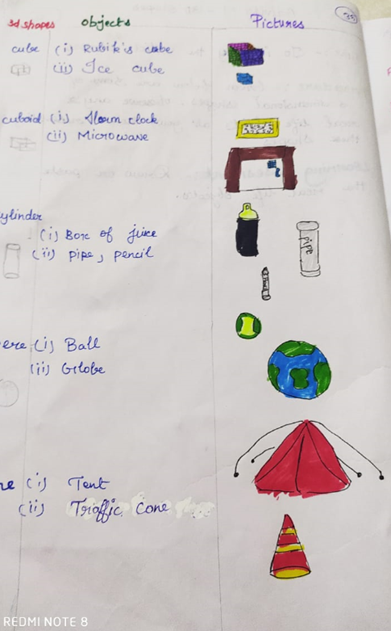 3d shapes objects Pictures
cube (i) Rubik's cube
(ii) Ice cube
cuboid (i) Alarm clock
(ii) Microwave
ylinder
(i) Box of juice
(ii) pipe, pencil
ere (i) Ball
(ii) Globe
ne (i) Tent
(ii) Traffic Cone
REDMI NOTE 8